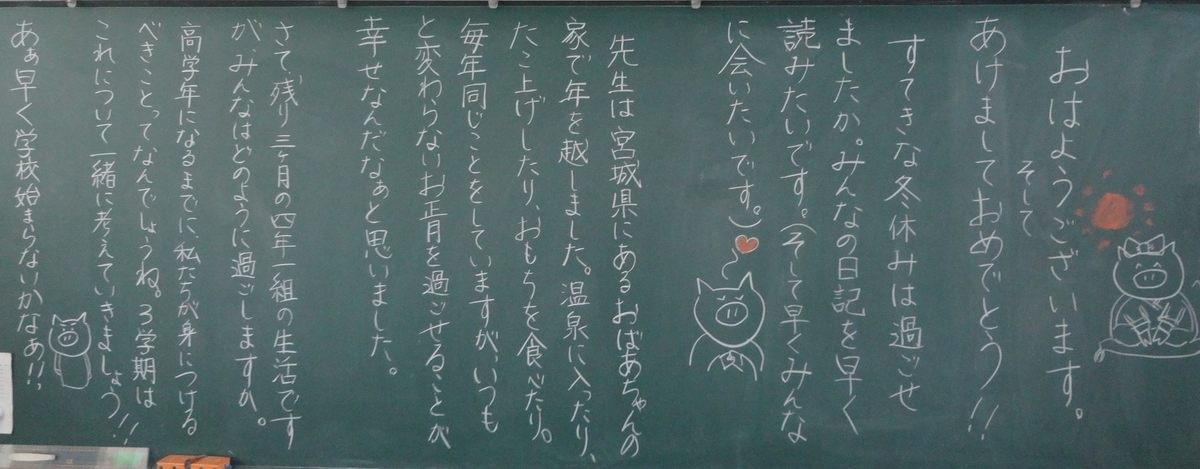 おはようございます。
そして
あけましておめでとう!!
すてきな冬休みは過ごせ
ましたか。みんなの日記を早く
読みたいです。(そして早くみんな
に会いたいです。)
先生は宮城県にあるおばあちゃんの
家で年を越しました。温泉に入ったり、
たこ上げしたり、おもちを食べたり。
毎年同じことをしていますが、いつも
と変わらないお正月を過ごせることが
幸せなんだなぁと思いました。
さて、残り三ヶ月の四年一組の生活です
が、みんなはどのように過ごしますか。
高学年になるまでに、私たちが身につける
べきことってなんでしょうね。3学期は
これについて一緒に考えていきましょう!!
あぁ早く学校始まらないかなぁ!!